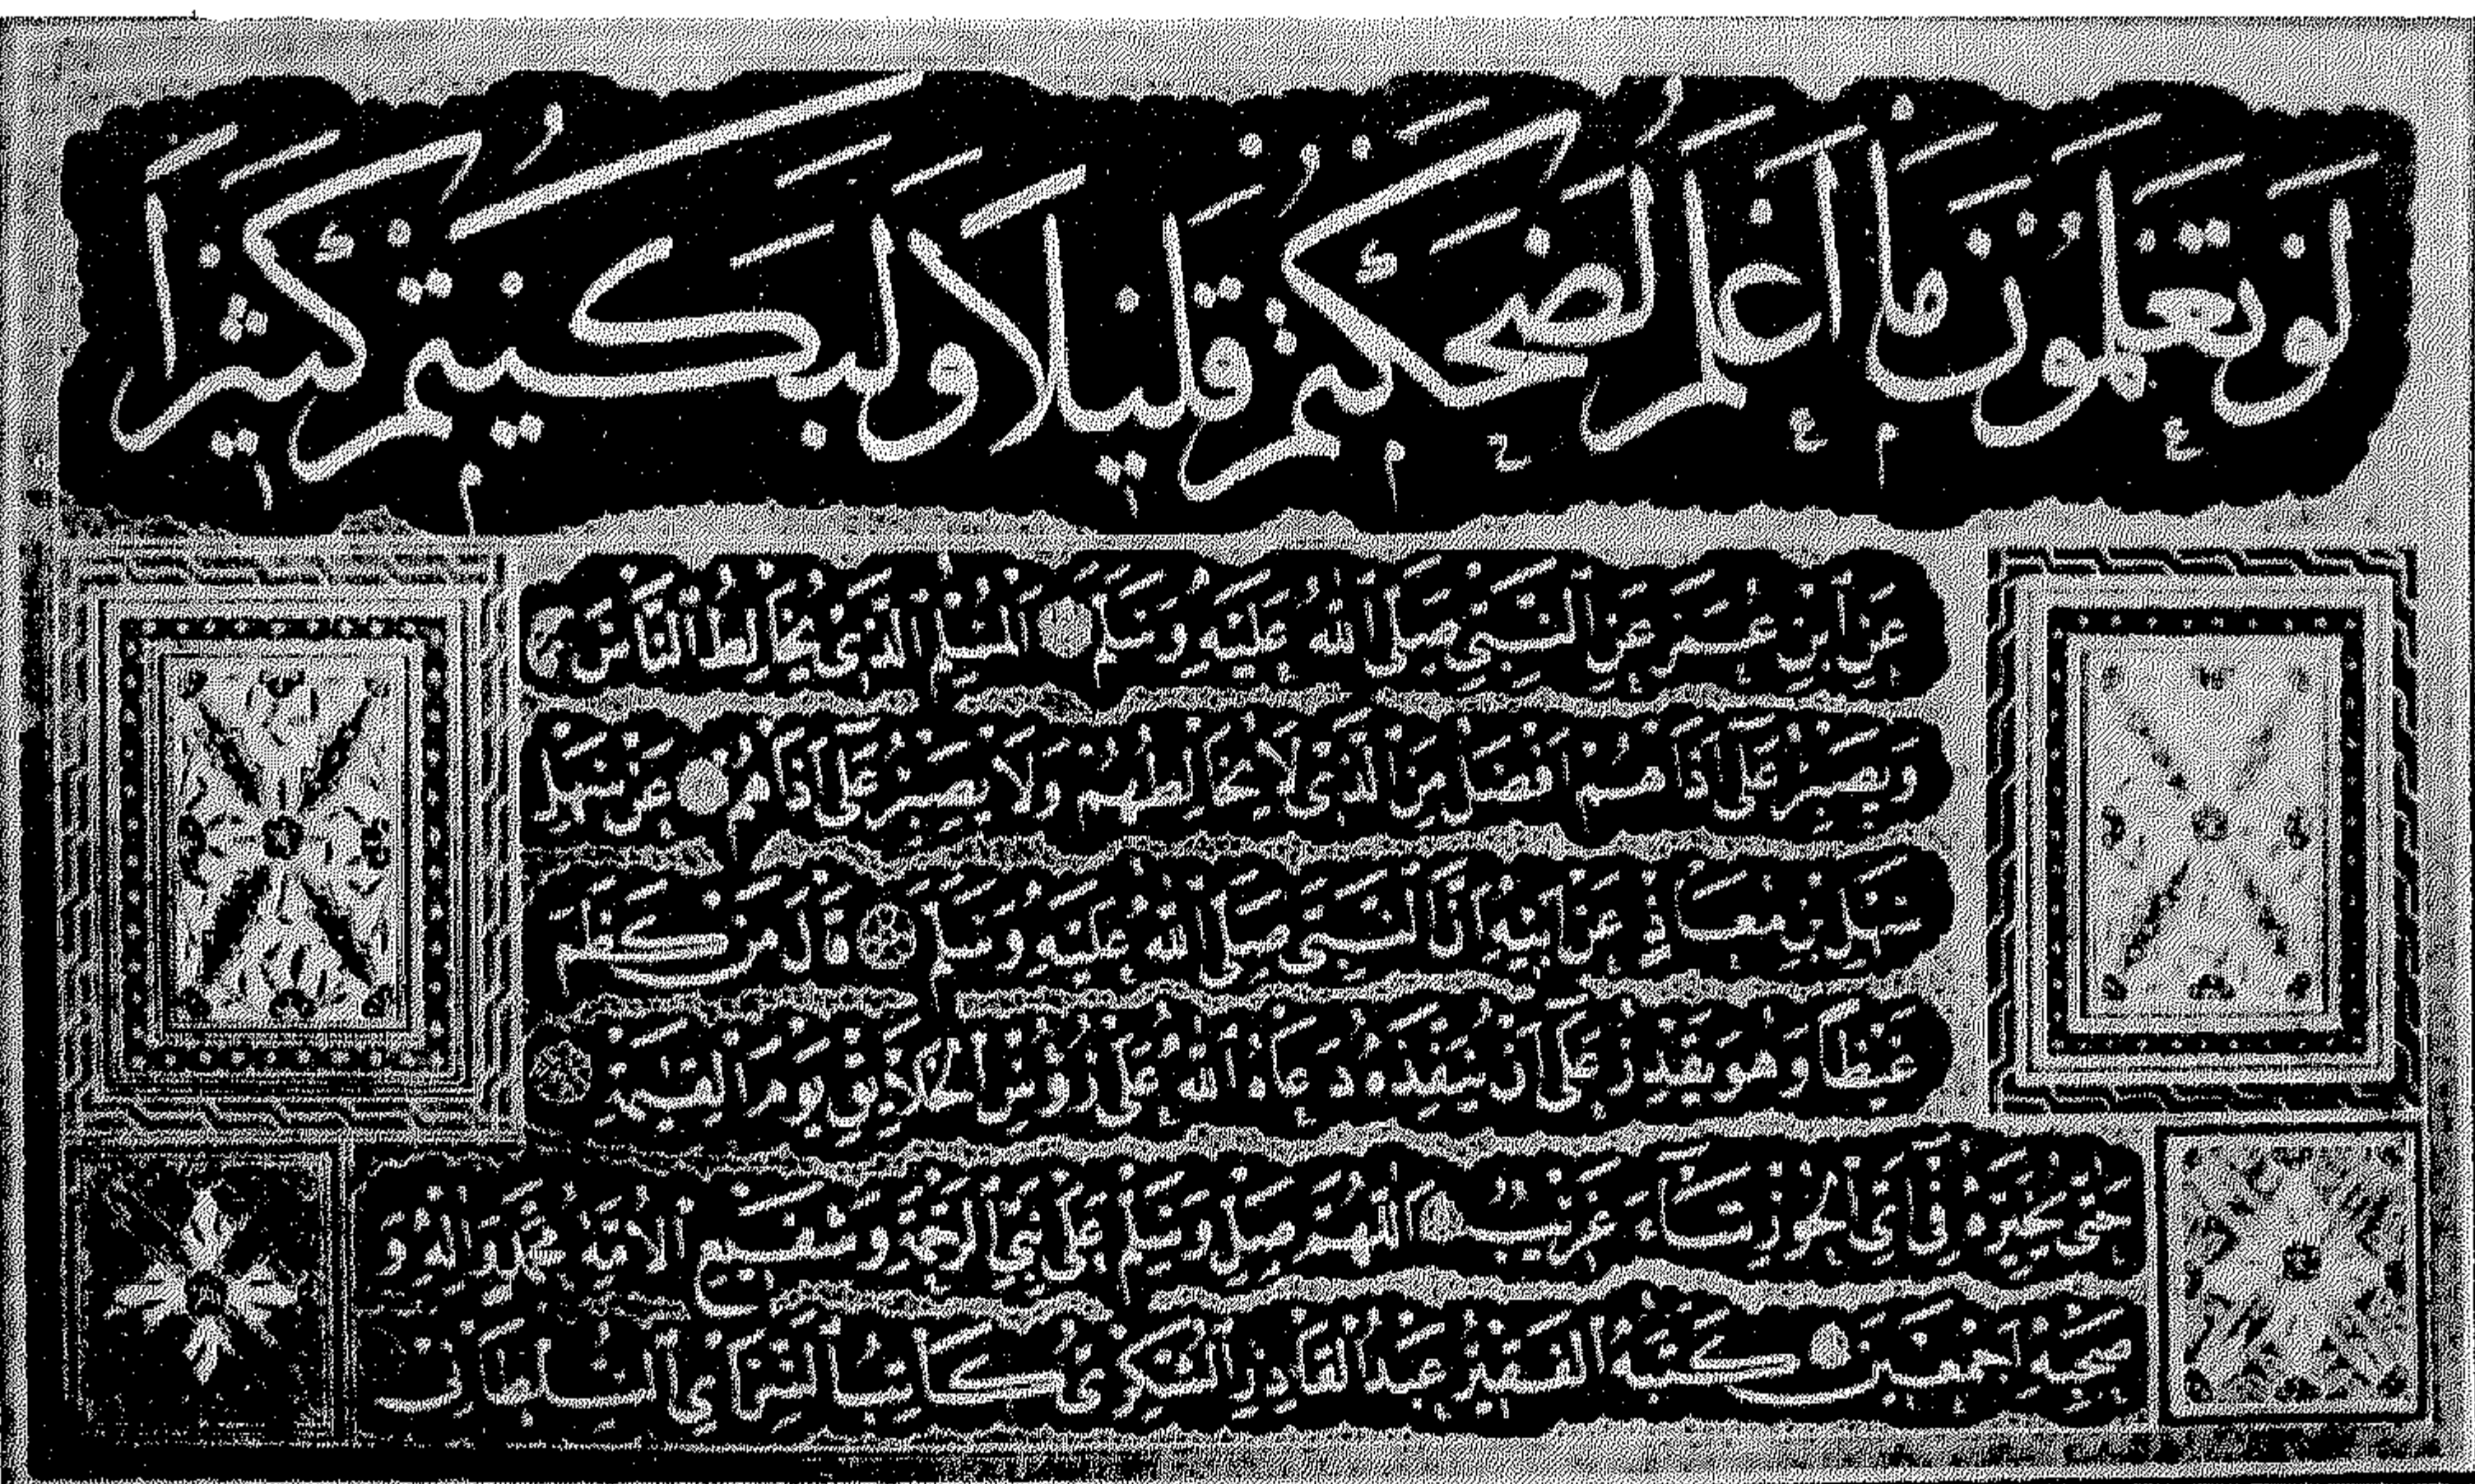 لَوْ تَعْلَمُونَ مَا أَعْلَمُ لَضَحِكْتُمْ قَلِيلًا وَلَبَكَيْتُمْ كَثِيرًا
عَنِ ابْنِ عُمَرَ عَنِ النَّبِيِّ صَلَّى اللهُ عَلَيْهِ وَسَلَّمَ الْمُسْلِمُ الَّذِي يُخَالِطُ النَّاسَ
وَيَصْبِرُ عَلَى أَذَاهُمْ أَفْضَلُ مِنَ الَّذِي لَا يُخَالِطُهُمْ وَلَا يَصْبِرُ عَلَى أَذَاهُمْ عَنْ سَهْلِ
سَهْلِ بْنِ مُعَاذٍ عَنْ أَبِيهِ أَنَّ النَّبِيَّ صَلَّى اللهُ عَلَيْهِ وَسَلَّمَ قَالَ مَنْ كَظَمَ
غَيْظًا وَهُوَ يَقْدِرُ عَلَى أَنْ يُنَفِّذَهُ دَعَاهُ اللهُ عَلَى رُءُوسِ الْخَلَائِقِ يَوْمَ الْقِيَمَةِ
حَتَّى يُخَيِّرَهُ فِي أَيِّ الْحُورِ شَاءَ غَرِيبٌ اللَّهُمَّ صَلِّ وَسَلِّمْ عَلَى نَبِيِّ الرَّحْمَةِ وَشَفِيعِ الْأُمَّةِ مُحَمَّدٍ وَآلِهِ وَ
صَحْبِهِ أَجْمَعِينَ كَتَبَهُ الْفَقِيرُ عَبْدُ الْقَادِرِ الشُّكْرِيُّ كَاتِبُ السَّرَايِ السُّلْطَانِيِّ